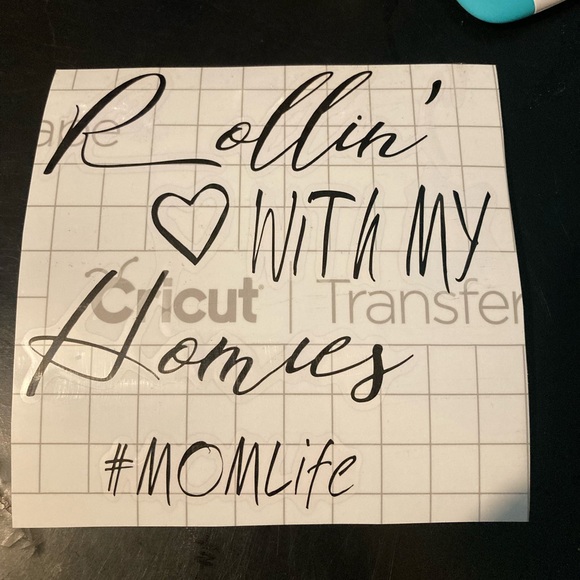 Rollin'
ape
WITH MY
Cricut | Transfer
Homies
#MOMLife